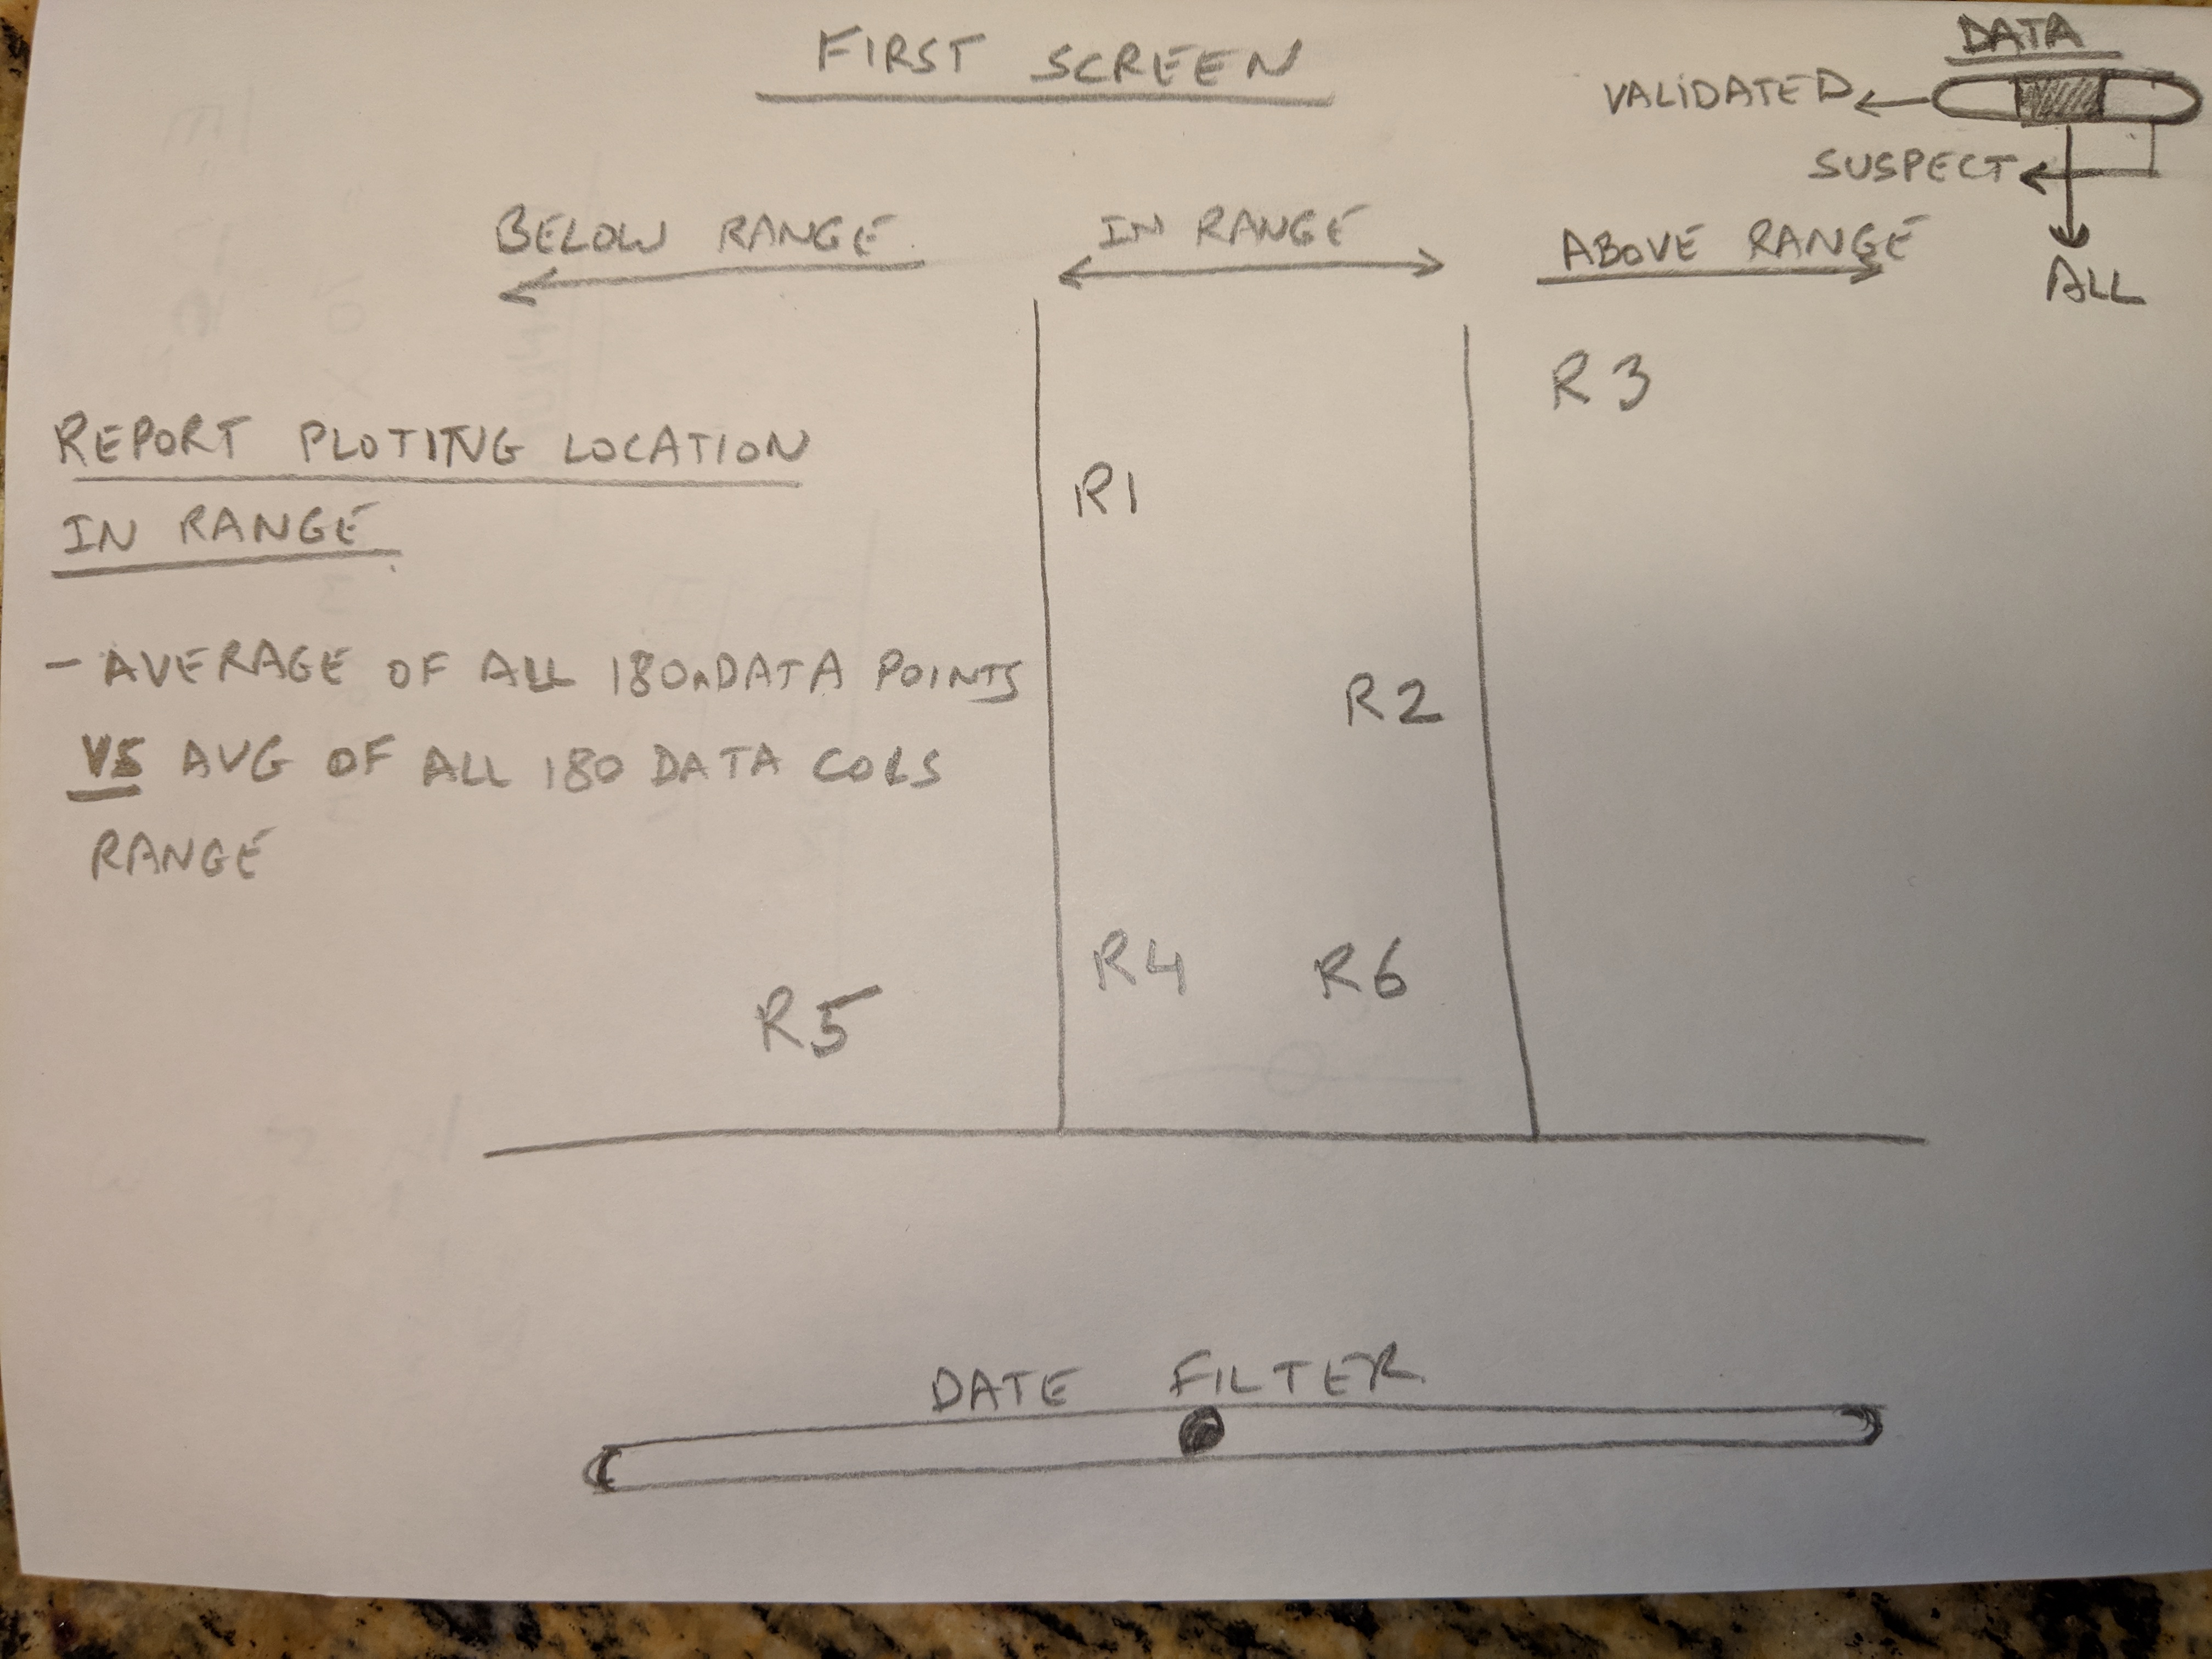 FIRST SCREEN
DATA
VALIDATED
SUSPECT
ALL
BELOW RANGE
IN RANGE
ABOVE RANGE
REPORT PLOTITNG LOCATION
IN RANGE
- AVERAGE OF ALL 180 DATA POINTS
VS AVG OF ALL 180 DATA COLS
RANGE
R1
R3
R2
R5
R4
R6
DATE FILTER